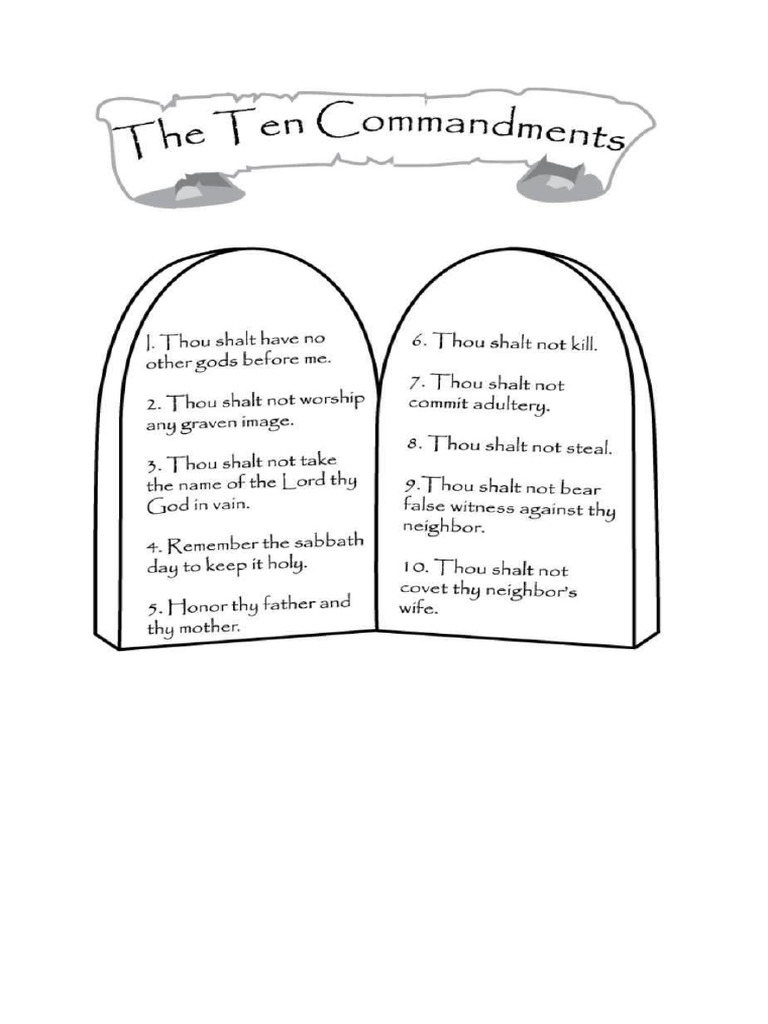 The Ten Commandments
1. Thou shalt have no
other gods before me.
2. Thou shalt not worship
any graven image.
3. Thou shalt not take
the name of the Lord thy
God in vain.
4. Remember the sabbath
day to keep it holy.
5. Honor thy father and
thy mother.
6. Thou shalt not kill.
7. Thou shalt not
commit adultery.
8. Thou shalt not steal.
9.Thou shalt not bear
false witness against thy
neighbor.
10. Thou shalt not
covet thy neighbor's
wife.